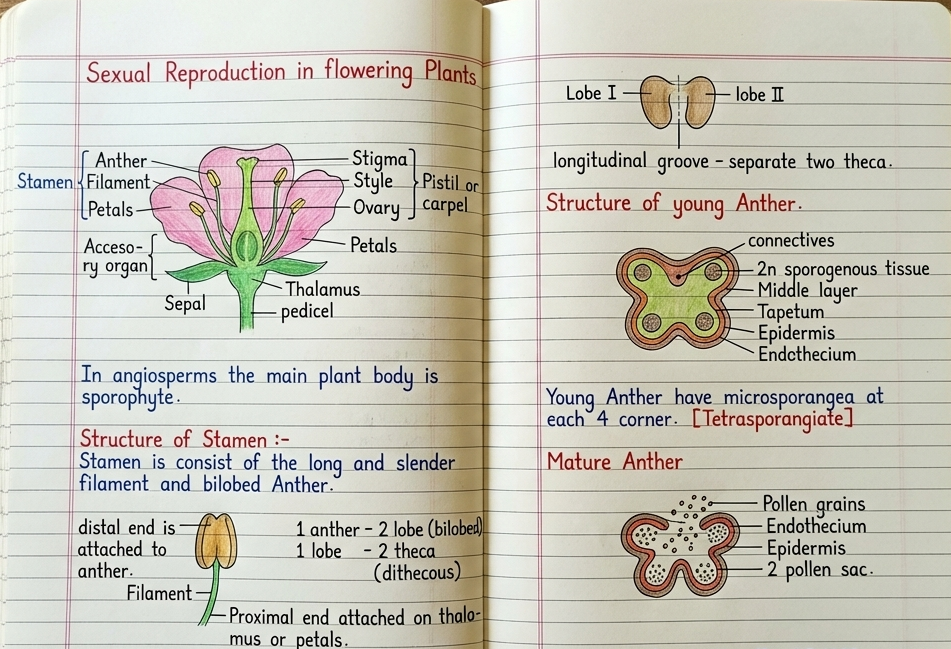 Sexual Reproduction in flowering Plants
Stamen
Anther
Filament
Petals
Acceso-
ry organ
Sepal
Stigma
Style
Ovary
Pistil or
carpel
Petals
Thalamus
pedicel
In angiosperms the main plant body is
sporophyte.
Structure of Stamen :-
Stamen is consist of the long and slender
filament and bilobed Anther.
distal end is
attached to
anther.
Filament
1 anther - 2 lobe (bilobed)
1 lobe - 2 theca
(dithecous)
Proximal end attached on thala-
mus or petals.
Lobe I
lobe II
longitudinal groove - separate two theca.
Structure of young Anther.
connectives
2n sporogenous tissue
Middle layer
Tapetum
Epidermis
Endothecium
Young Anther have microsporangea at
each 4 corner. [Tetrasporangiate]
Mature Anther
Pollen grains
Endothecium
Epidermis
2 pollen sac.